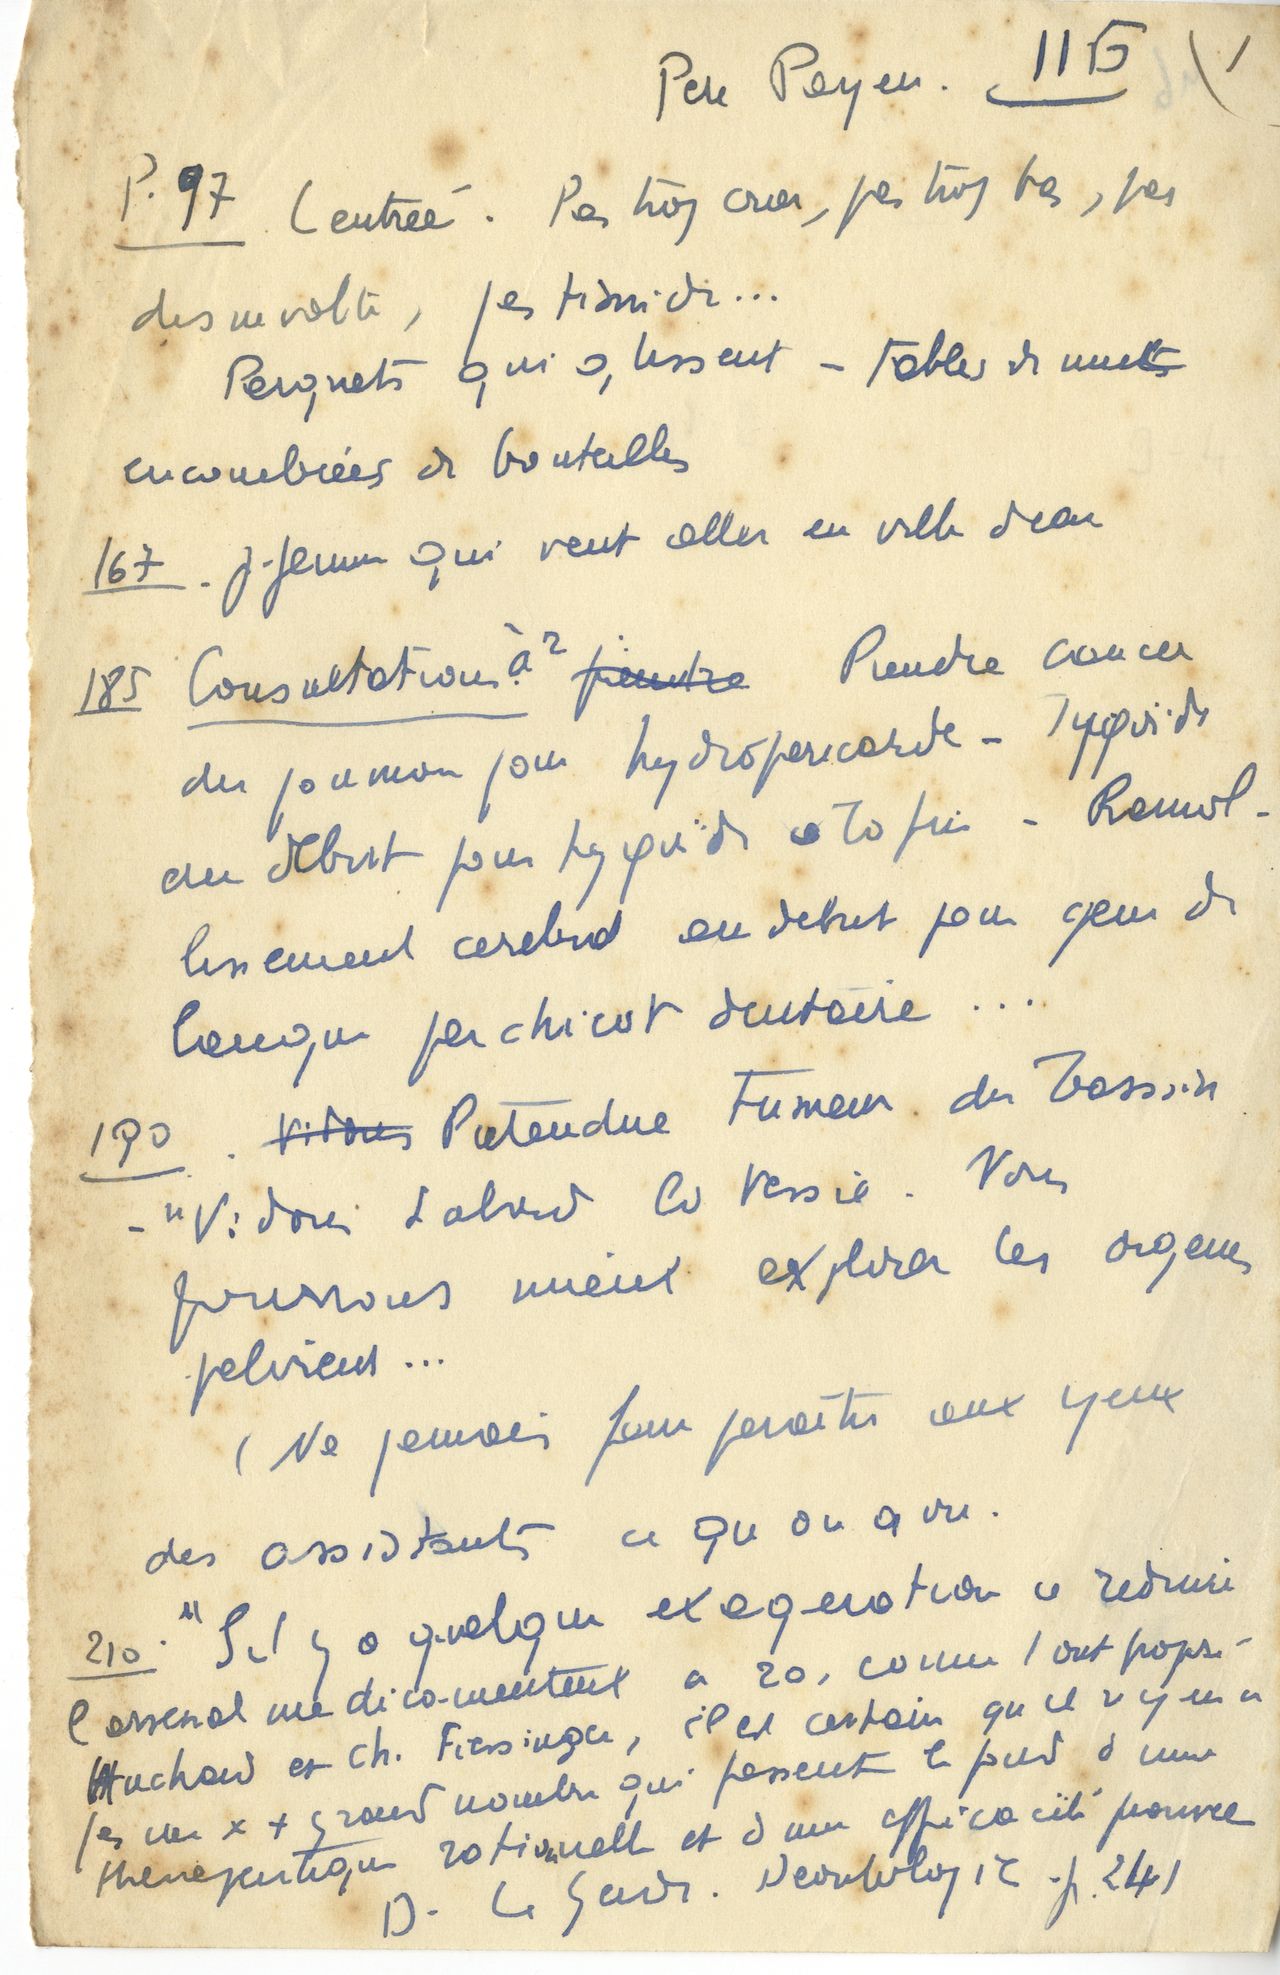 Père Payen. 115
P. 97 L'entrée. Pas trop crâ, pas trop bas, pas
desinvolte, pas timide...
Parquets qui glissent - Tables de nuits
encombrées de bouteilles
167. j. femme qui veut aller en ville d'eau
185 Consultations à 2 Prendre cancer
du poumon pour hydropericarde - Typhoïde
au début pour typhoïde à la fin - Ramol-
lissement cerebral au debut pour gene de
langue par chicot dentaire ...
190. Vidons Pretendue Tumeur du bassin
- "Vidons d'abord la Vessie. Nous
pourrons mieux explorer les organes
pelviens...
(Ne jamais faire paraitre aux yeux
des assistants ce qu'on a vu.
210. "S'il y a quelque exageration à reduire
l'arsenal medicamenteux a 20, comme l'ont proposé
Huchard et Ch. Fiessinger, il est certain qu'il n'y en a
pas un x + grand nombre qui passent le pied d'une
therapeutique rationnelle et d'une efficacité prouvée
D. Le Gendre. Deontologie. p. 241